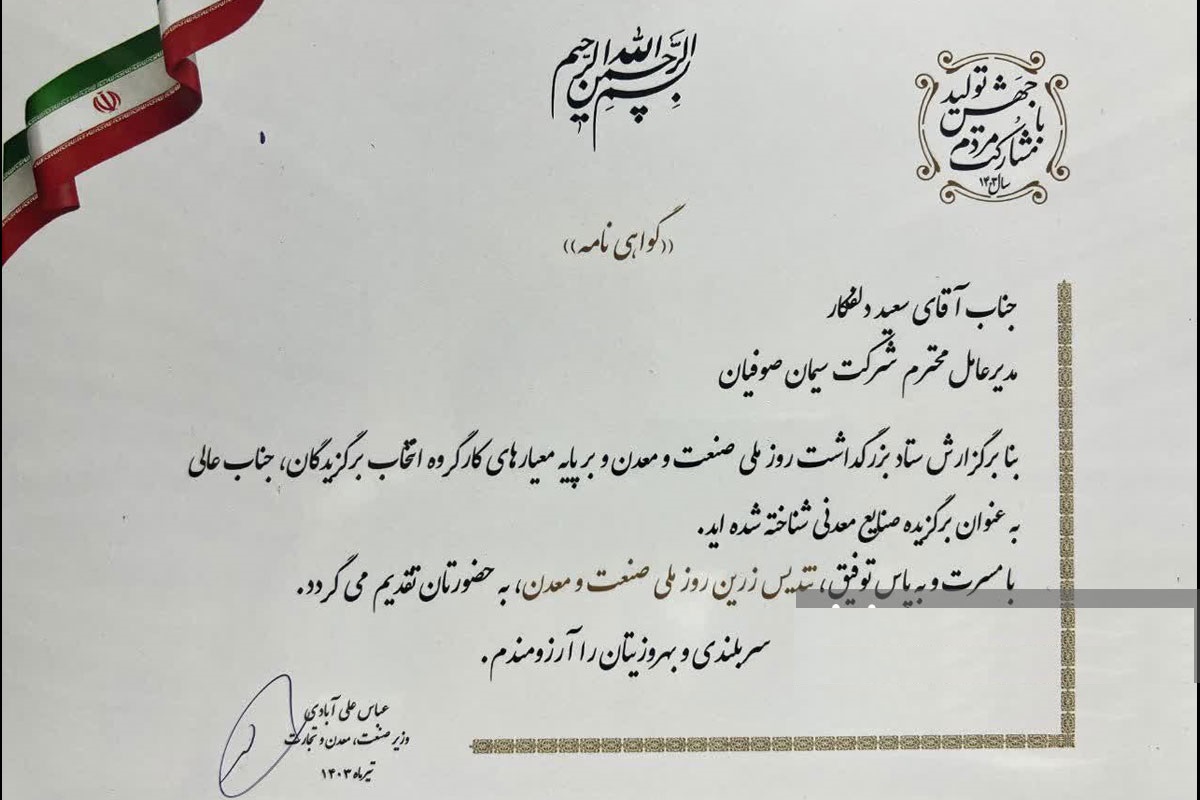 بسم الله الرحمن الرحیم
جهش تولید
با مشارکت مردم
سال ۱۴۰۳
((گواهی نامه))
جناب آقای سعید دلفکار
مدیرعامل محترم شرکت سیمان صوفیان
بنا برگزارش ستاد بزرگداشت روز ملی صنعت و معدن و بر پایه معیارهای کارگروه انتخاب برگزیدگان، جناب عالی
به عنوان برگزیده صنایع معدنی شناخته شده اید.
با مسرت و به پاس توفیق، تندیس زرین روز ملی صنعت و معدن، به حضورتان تقدیم می گردد.
سربلندی و بهروزیتان را آرزومندم.
عباس علی آبادی
وزیر صنعت، معدن و تجارت
تیرماه ۱۴۰۳